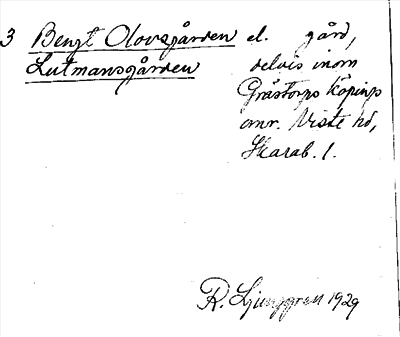 3 Bengt Olovsgården el. gård,
Lutmansgården delvis inom
Grästorps köpings
omr. Viste hd,
Skarab. l.
R. Ljunggren 1929